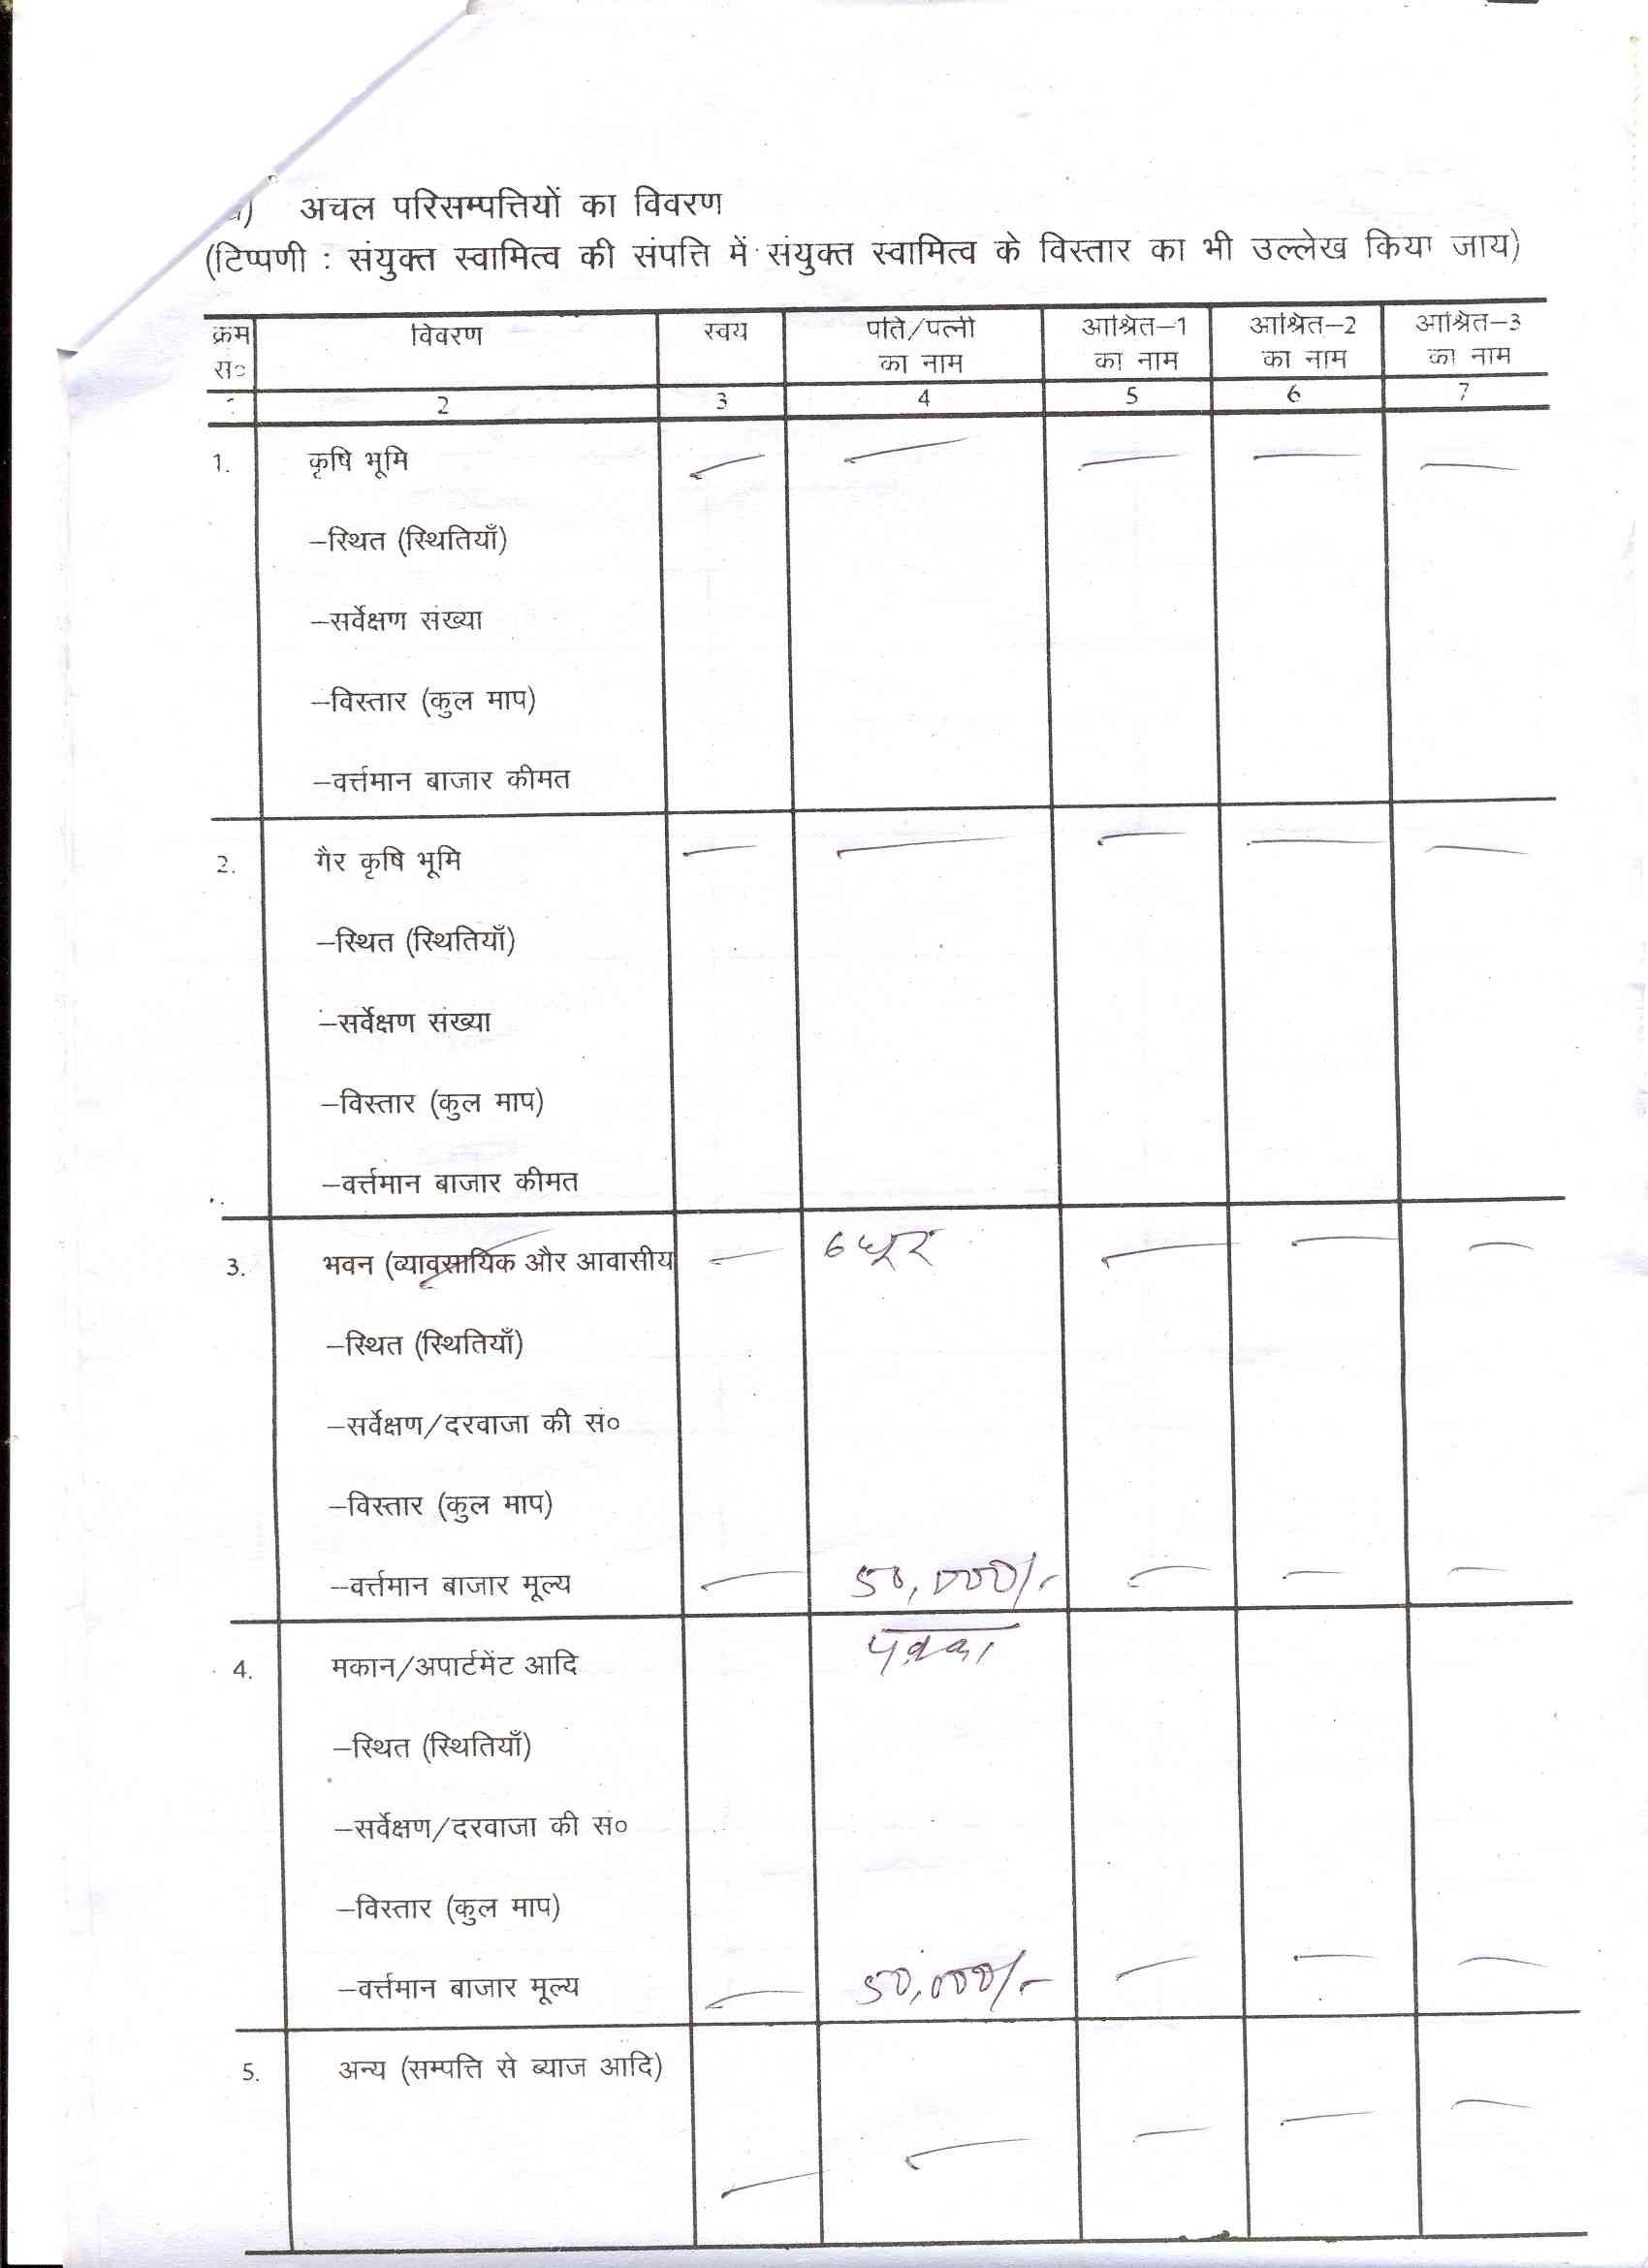 अचल परिसम्पत्तियों का विवरण
(टिप्पणी : संयुक्त स्वामित्व की संपत्ति में संयुक्त स्वामित्व के विस्तार का भी उल्लेख किया जाय)
क्रम सं० विवरण स्वयं पति/पत्नी का नाम आश्रित-1 का नाम आश्रित-2 का नाम आश्रित-3 का नाम
2 3 4 5 6 7
1. कृषि भूमि — — — — —
-स्थित (स्थितियाँ)
-सर्वेक्षण संख्या
-विस्तार (कुल माप)
-वर्त्तमान बाजार कीमत
2. गैर कृषि भूमि — — — — —
-स्थित (स्थितियाँ)
-सर्वेक्षण संख्या
-विस्तार (कुल माप)
-वर्त्तमान बाजार कीमत
3. भवन (व्यावसायिक और आवासीय — 6 धूर — — —
-स्थित (स्थितियाँ)
-सर्वेक्षण/दरवाजा की सं०
-विस्तार (कुल माप)
-वर्त्तमान बाजार मूल्य — 50,000/- — — —
4. मकान/अपार्टमेंट आदि पक्का
-स्थित (स्थितियाँ)
-सर्वेक्षण/दरवाजा की सं०
-विस्तार (कुल माप)
-वर्त्तमान बाजार मूल्य — 50,000/- — — —
5. अन्य (सम्पत्ति से ब्याज आदि) — — — — —